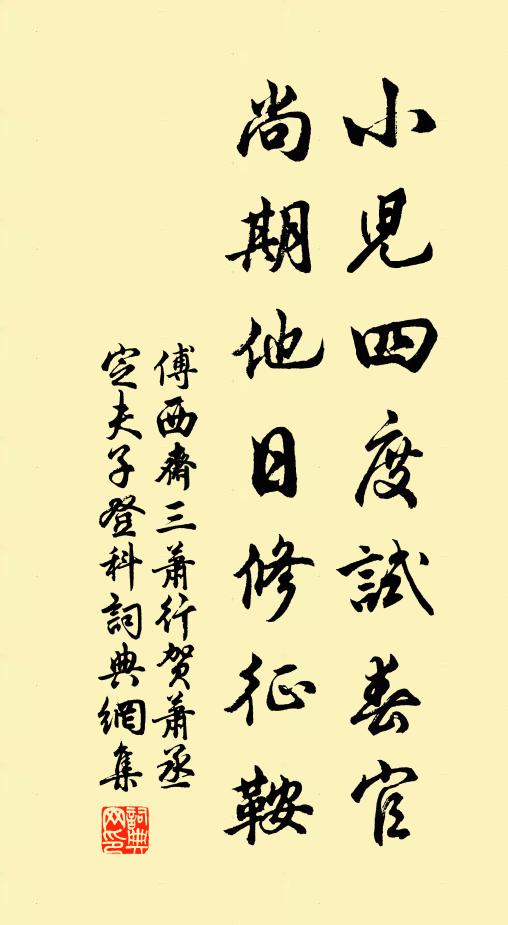 小児四度試春官
尚期他日修征鞍
傅西齋三蕭行賀蕭丞
定夫子登科詞典網集
詞典网印